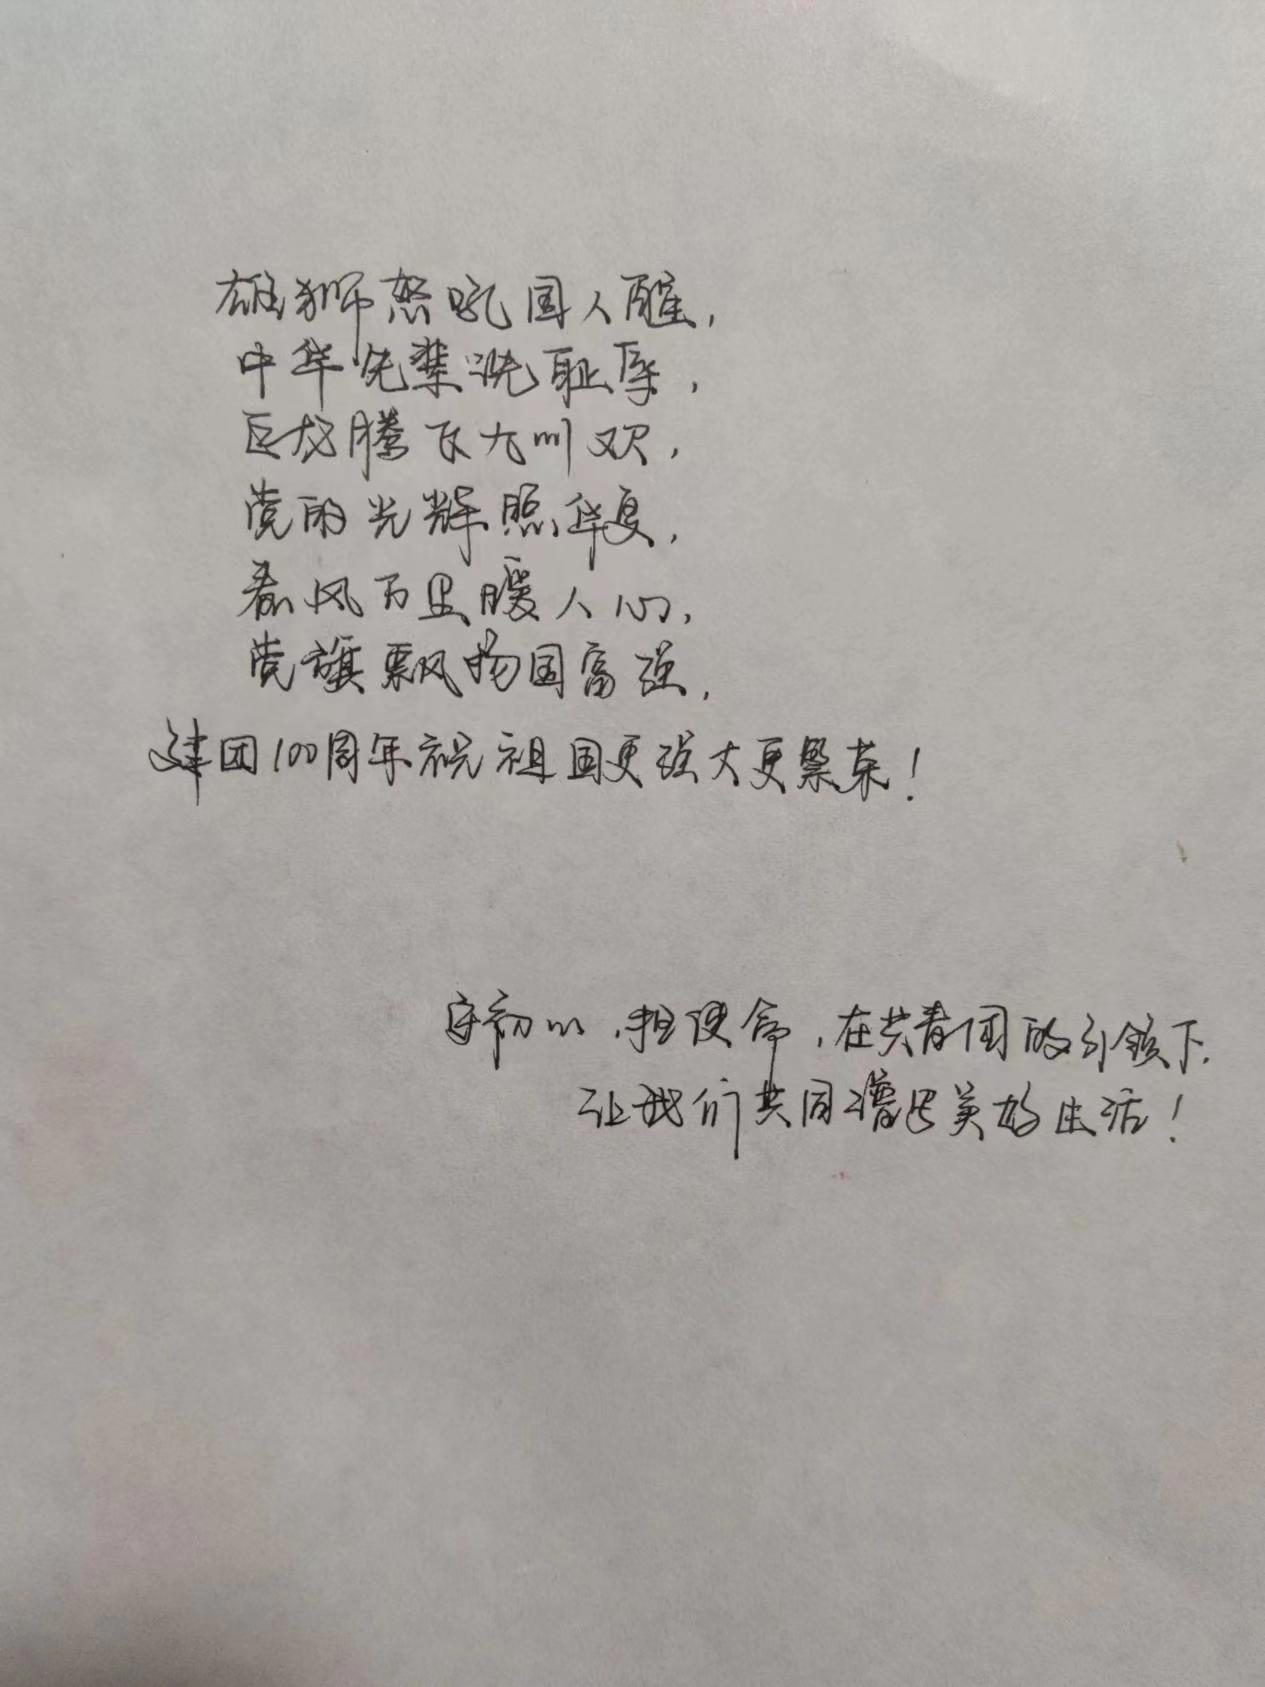 雄狮怒吼国人醒，
中华先辈洗耻辱，
巨龙腾飞九州欢，
党的光辉照华夏，
春风万里暖人心，
党旗飘扬国富强，
建团100周年祝祖国更强大更繁荣！
守初心，担使命，在共青团的引领下，
让我们共同谱写美好生活！